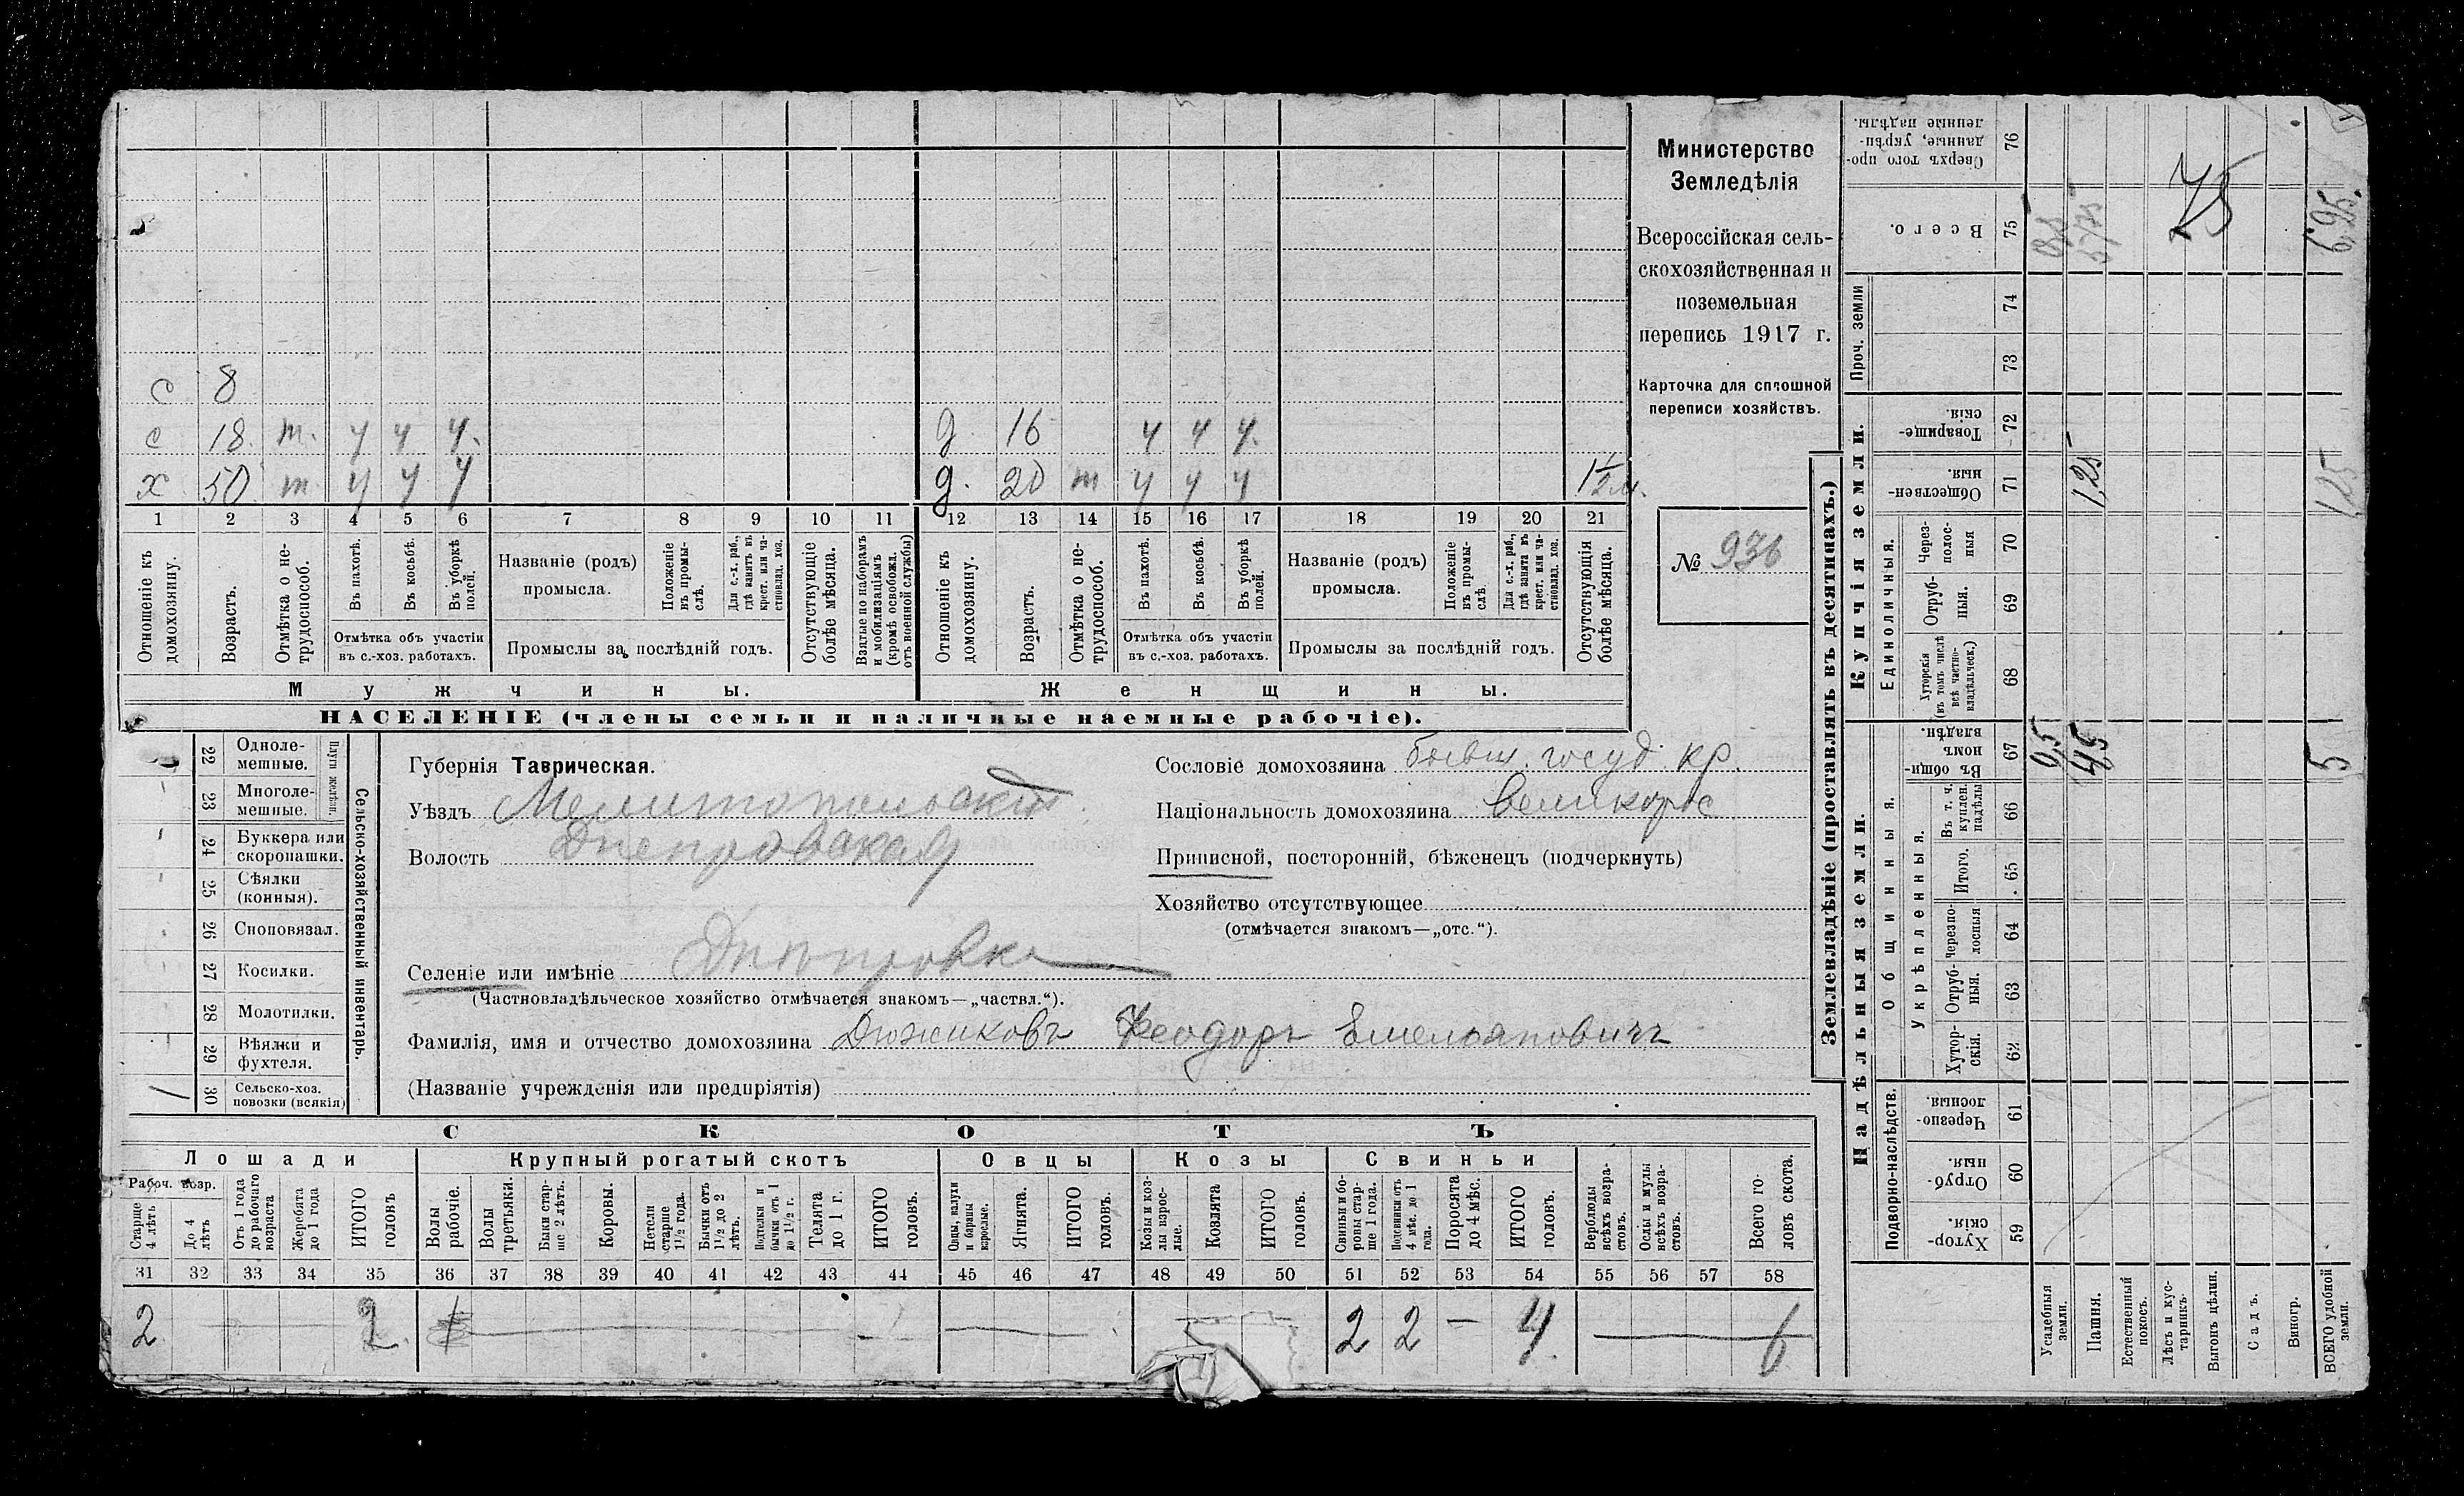 с 8
с 18. т. у у у. д 16 у у у.
х 50 т у у у д. 20 т у у у 1½ м.
1 2 3 4 5 6 7 8 9 10 11 12 13 14 15 16 17 18 19 20 21
Отношеніе къ домохозяину.
Возрастъ.
Отмѣтка о не-
трудоспособ.
Въ пахотѣ.
Въ косьбѣ.
Въ уборкѣ
полей.
Отмѣтка объ участіи
въ с.-хоз. работахъ.
Названіе (родъ)
промысла.
Положеніе
въ промы-
слѣ.
Для с.-х. раб.,
гдѣ занятъ въ
крест. или ча-
стновлад. хоз.
Промыслы за послѣдній годъ.
Отсутствующіе
болѣе мѣсяца.
Взятые по наборамъ
и мобилизаціямъ
(кромѣ освобожд.
отъ военной службы)
Отношеніе къ
домохозяину.
Возрастъ.
Отмѣтка о не-
трудоспособ.
Въ пахотѣ.
Въ косьбѣ.
Въ уборкѣ
полей.
Отмѣтка объ участіи
въ с.-хоз. работахъ.
Названіе (родъ)
промысла.
Положеніе
въ промы-
слѣ.
Для с.-х. раб.,
гдѣ занята въ
крест. или ча-
стновлад. хоз.
Промыслы за послѣдній годъ.
Отсутствующія
болѣе мѣсяца.
Мужчины.
Женщины.
НАСЕЛЕНІЕ (члены семьи и наличные наемные рабочіе).
Министерство
Земледѣлія
Всероссійская сель-
скохозяйственная и
поземельная
перепись 1917 г.
Карточка для сплошной
переписи хозяйствъ.
№ 936
22 Одноле-
мешные.
23 Многоле-
мешные.
Плуги желѣзн.
24 Буккера или
скоропашки.
25 Сѣялки
(конныя).
26 Сноповязал.
27 Косилки.
28 Молотилки.
29 Вѣялки и
фухтеля.
1 30 Сельско-хоз.
повозки (всякія)
Сельско-хозяйственный инвентарь.
Губернія Таврическая.
Уѣздъ Мелитопольскій.
Волость Днепровская
Селеніе или имѣніе Днепровка
(Частновладѣльческое хозяйство отмѣчается знакомъ—„частвл.“).
Фамилія, имя и отчество домохозяина Дюжиковъ Феодоръ Емельяновичъ
(Названіе учрежденія или предпріятія)
Сословіе домохозяина бывш. госуд. кр.
Національность домохозяина великорос
Приписной, посторонній, бѣженецъ (подчеркнуть)
Хозяйство отсутствующее
(отмѣчается знакомъ—„отс.“).
СКОТЪ
Лошади
Крупный рогатый скотъ
Овцы
Козы
Свиньи
Рабоч. возр.
Старше
4 лѣтъ
До 4
лѣтъ
Отъ 1 года
до рабочаго
возраста
Жеребята
до 1 года
ИТОГО
головъ
Волы
рабочіе.
Волы
третьяки.
Быки стар-
ше 2 лѣтъ.
Коровы.
Нетели
старше
1½ года.
Бычки отъ
1½ до 2
лѣтъ.
Подтелки и
бычки отъ 1
до 1½ г.
Телята
до 1 г.
ИТОГО
головъ.
Овцы, валухи
и бараны
взрослые.
Ягнята.
ИТОГО
головъ.
Козы и коз-
лы взрос-
лые.
Козлята
ИТОГО
головъ.
Свиньи и бо-
ровы стар-
ше 1 года.
Подсвинки отъ
4 мѣс. до 1
года.
Поросята
до 4 мѣс.
ИТОГО
головъ.
Верблюды
всѣхъ возра-
стовъ.
Ослы и мулы
всѣхъ возра-
стовъ.
Всего го-
ловъ скота.
31 32 33 34 35 36 37 38 39 40 41 42 43 44 45 46 47 48 49 50 51 52 53 54 55 56 57 58
2 2. 2 2 — 4. 6
Землевладѣніе (проставлять въ десятинахъ.)
Надѣльныя земли.
Купчія земли.
Проч. земли
Подворно-наслѣдств.
Общинныя.
Укрѣпленныя.
Единоличныя.
Сверхъ того про-
данные, укрѣп-
ленные надѣлы.
76
Всего.
75
74
73
Товарище-
скія.
72
Обществен-
ныя.
71
Через-
полос-
ныя
70
Отруб-
ныя.
69
Хуторскія
(въ томъ числѣ
всѣ частно-
владѣльческ.)
68
Въ общи-
номъ
владѣн.
67
Въ т. ч.
куплен.
надѣлы
66
Итого.
65
черезпо-
лосныя
64
Отруб-
ныя.
63
Хутор-
скія.
62
Черезпо-
лосныя.
61
Отруб-
ныя.
60
Хутор-
скія.
59
Усадебныя
земли.
Пашня.
Естественный
покосъ.
Лѣсъ и кус-
тарникъ.
Выгонъ цѣлин.
Садъ.
Виногр.
ВСЕГО удобной
земли.
75
6,25.
1,25
1,25
0,5
4,5
5